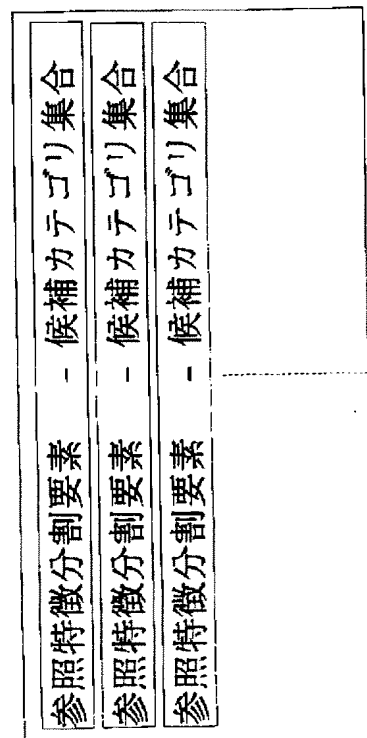 参照特徴分割要素 - 候補カテゴリ集合
参照特徴分割要素 - 候補カテゴリ集合
参照特徴分割要素 - 候補カテゴリ集合